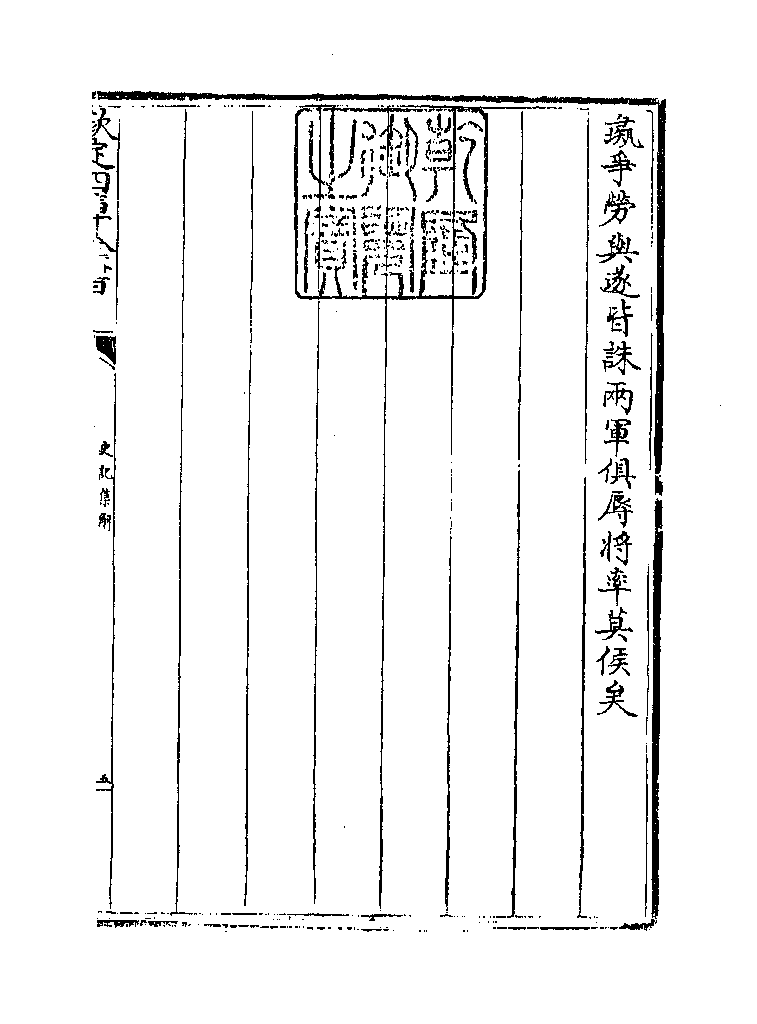 彘爭勞與遂皆誅兩軍俱辱將率莫侯矣
乾隆御覽之寶
欽定四庫全書
史記集解
五